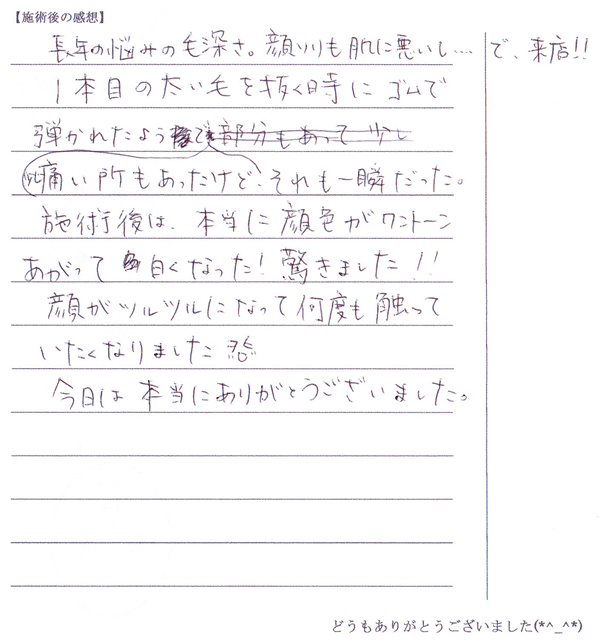 【施術後の感想】
長年の悩みの毛深さ。顔ソリも肌に悪いし…で、来店!!
1本目の太い毛を抜く時にゴムで
弾かれたような部分もあって少し
少し痛い所もあったけど、それも一瞬だった。
施術後は、本当に顔色がワントーン
あがって白くなった!驚きました!!
顔がツルツルになって何度も触って
いたくなりました
今日は本当にありがとうございました。
どうもありがとうございました(*^_^*)